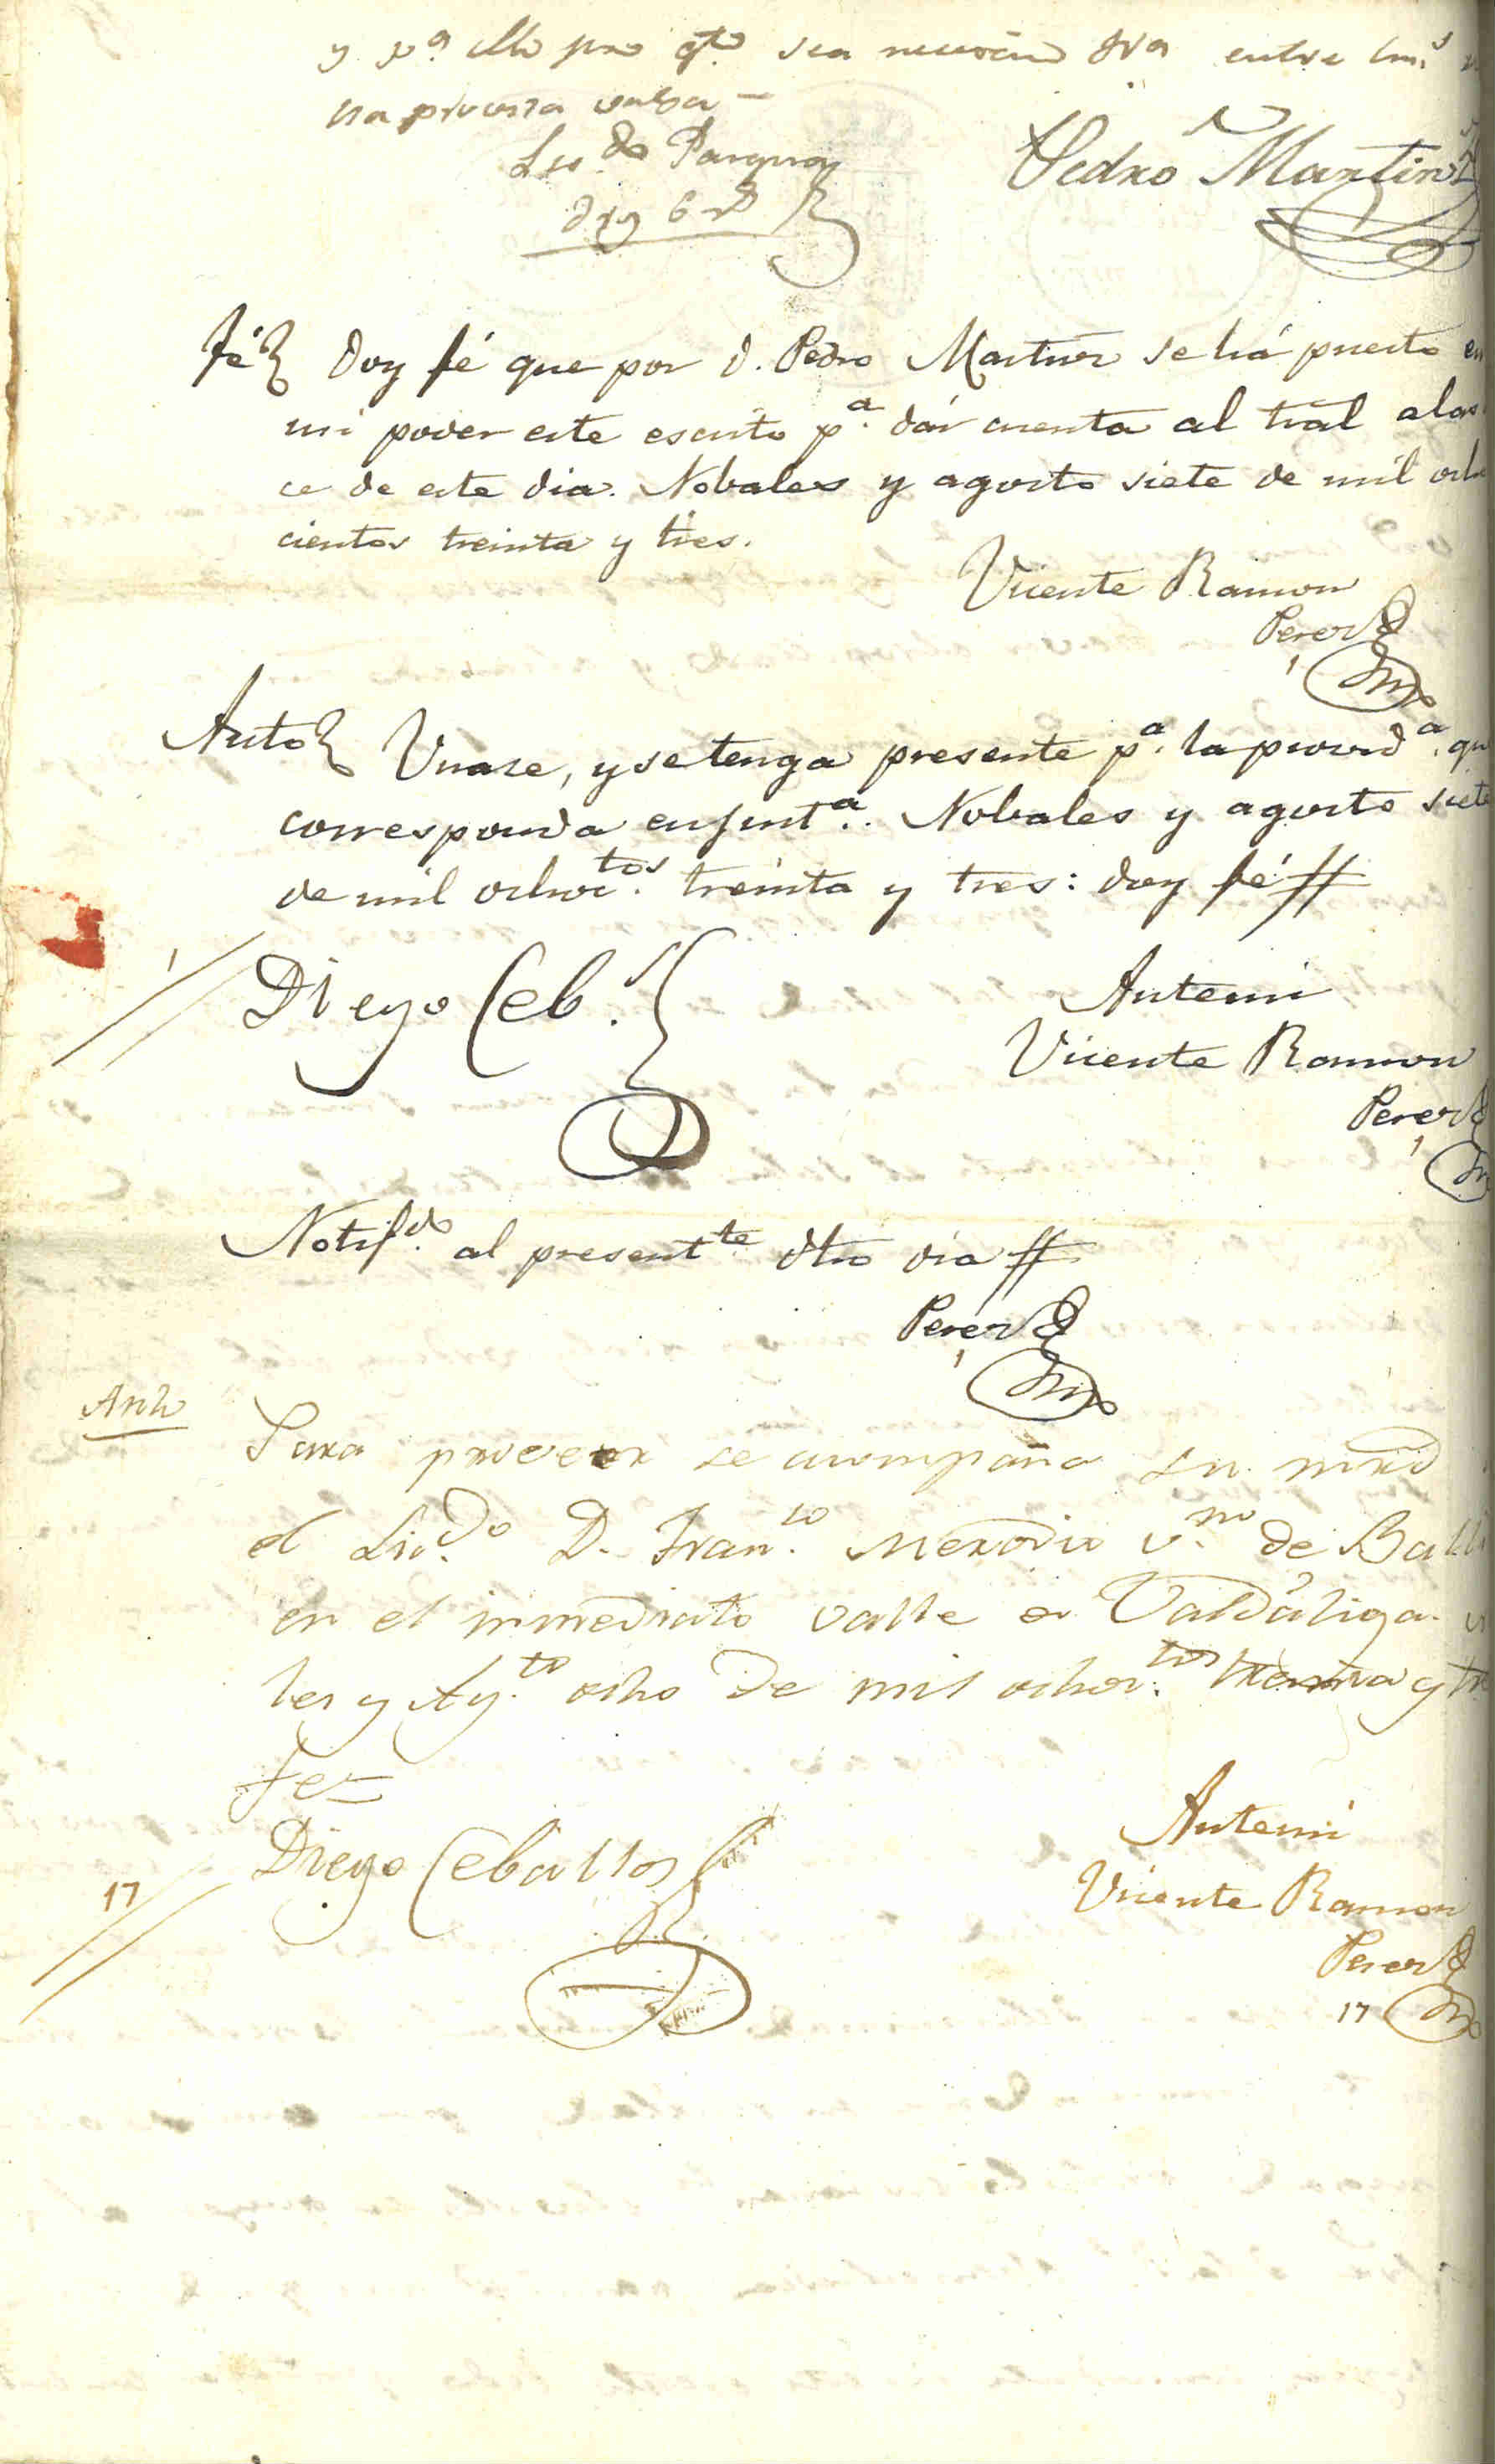 y p.ª ello pro q.to sea necesario
Lic.do
Pedro Martin
Fé Doy fé que por D. Pedro Martinez se há puesto en
mi poder este escrito p.ª dár cuenta al tral a las
ce de este dia. Nobales y agosto siete de mil ocho
cientos treinta y tres.
Vicente Ramon
Perez
Auto Unase, y se tenga presente p.ª la provid.ª que
corresponda en junt.ª. Nobales y agosto siete
de mil ochoc.tos treinta y tres: doy fé
Diego Ceb.s
Antemi
Vicente Ramon
Perez
Notif.do al present.te dho dia
Perez
Auto
Para proveer se acompaña su mrd
el Lic.do D. Fran.co v.no de
en el inmediato valle de Valdáliga
les y Ag.to ocho de mil ochoc.tos treinta y tre
fe
Diego Ceballos
Antemi
Vicente Ramon
Perez
17
17